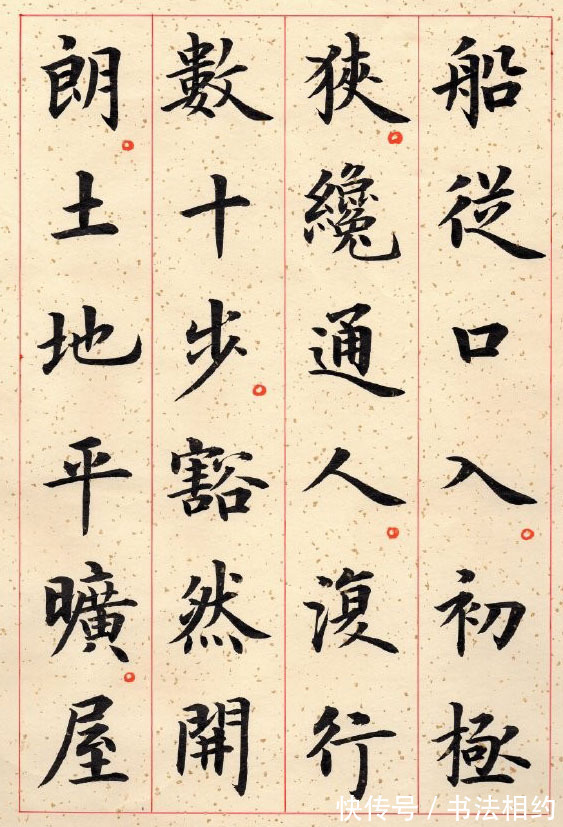 船從口入。初極
狹。纔通人。復行
數十步。豁然開
朗。土地平曠。屋
快传号 / 书法相约